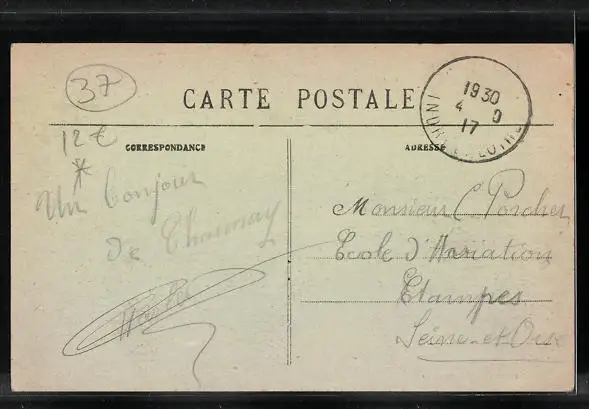 37
CARTE POSTALE
1930
4 9
17
INDRE-ET-LOIRE
12 €
CORRESPONDANCE
ADRESSE
Un bonjour
de
Monsieur C Porcher
Ecole d'Aviation
Etampes
Seine-et-Oise